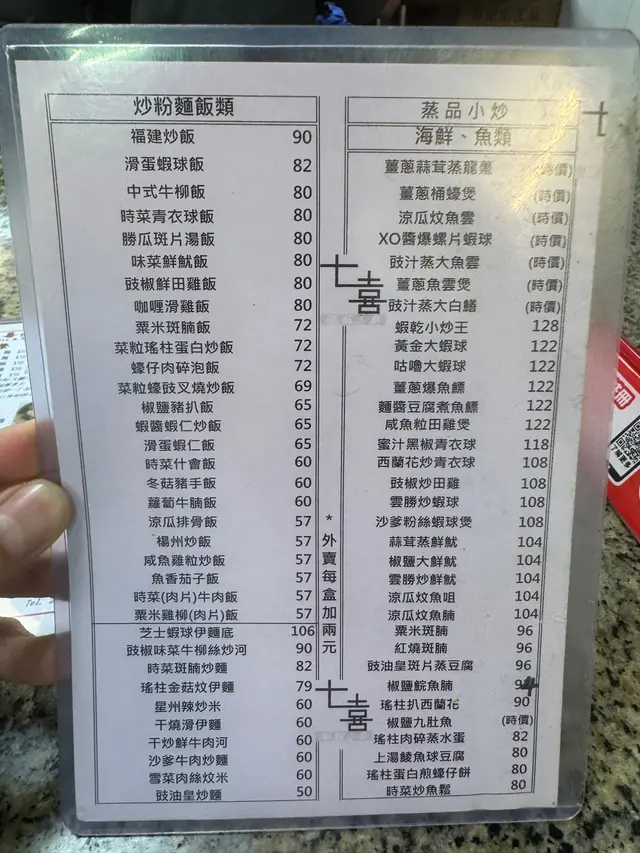 炒粉麵飯類
福建炒飯 90
滑蛋蝦球飯 82
中式牛柳飯 80
時菜青衣球飯 80
勝瓜斑片湯飯 80
味菜鮮魷飯 80
豉椒鮮田雞飯 80
咖喱滑雞飯 80
粟米斑腩飯 72
菜粒瑤柱蛋白炒飯 72
蠔仔肉碎泡飯 72
菜粒蠔豉叉燒炒飯 69
椒鹽豬扒飯 65
蝦醬蝦仁炒飯 65
滑蛋蝦仁飯 65
時菜什會飯 60
冬菇豬手飯 60
蘿蔔牛腩飯 60
涼瓜排骨飯 57
楊州炒飯 57
咸魚雞粒炒飯 57
魚香茄子飯 57
時菜(肉片)牛肉飯 57
粟米雞柳(肉片)飯 57
芝士蝦球伊麵底 106
豉椒味菜牛柳絲炒河 90
時菜斑腩炒麵 82
瑤柱金菇炆伊麵 79
星州辣炒米 60
干燒滑伊麵 60
干炒鮮牛肉河 60
沙爹牛肉炒麵 60
雪菜肉絲炆米 60
豉油皇炒麵 50
七喜
*外賣每盒加兩元
七喜
蒸品小炒
海鮮、魚類
薑蔥蒜茸蒸龍躉 (時價)
薑蔥桶蠔煲 (時價)
涼瓜炆魚雲 (時價)
XO醬爆螺片蝦球 (時價)
豉汁蒸大魚雲 (時價)
薑蔥魚雲煲 (時價)
豉汁蒸大白鱔 (時價)
蝦乾小炒王 128
黃金大蝦球 122
咕嚕大蝦球 122
薑蔥爆魚鰾 122
麵醬豆腐煮魚鰾 122
咸魚粒田雞煲 122
蜜汁黑椒青衣球 118
西蘭花炒青衣球 108
豉椒炒田雞 108
雲勝炒蝦球 108
沙爹粉絲蝦球煲 108
蒜茸蒸鮮魷 104
椒鹽大鮮魷 104
雲勝炒鮮魷 104
涼瓜炆魚咀 104
涼瓜炆魚腩 104
粟米斑腩 96
紅燒斑腩 96
豉油皇斑片蒸豆腐 96
椒鹽鯇魚腩 94
瑤柱扒西蘭花 90
椒鹽九肚魚 (時價)
瑤柱肉碎蒸水蛋 82
上湯鯪魚球豆腐 80
瑤柱蛋白煎蠔仔餅 80
時菜炒魚鬆 80
七